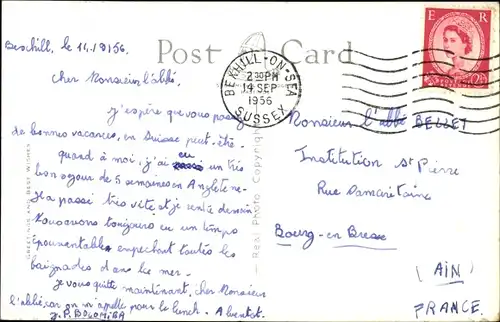 Bexhill, le 14/9/56.
Post Card
Cher Monsieur l'abbé,
J'espère que vous passez
de bonnes vacances, en Suisse peut-être.
quand à moi, j'ai eu un très
bon séjour de 5 semaines en Angleterre.
Il a passé très vite et je rentre demain.
Nous avons toujours eu un temps
épouvantable empêchant toutes les
baignades dans la mer.
Je vous quitte maintenant, cher Monsieur
l'abbé, car on m'appelle pour le lunch. A bientôt.
J.P. BOLOMIBA
GREETINGS AND BEST WISHES
Real Photo Copyright
BEXHILL-ON-SEA
2 30 PM
14 SEP
1956
SUSSEX
E R
Monsieur l'abbé BELLET
Institution St Pierre
Rue Samaritaine
Bourg-en-Bresse
(AIN)
FRANCE